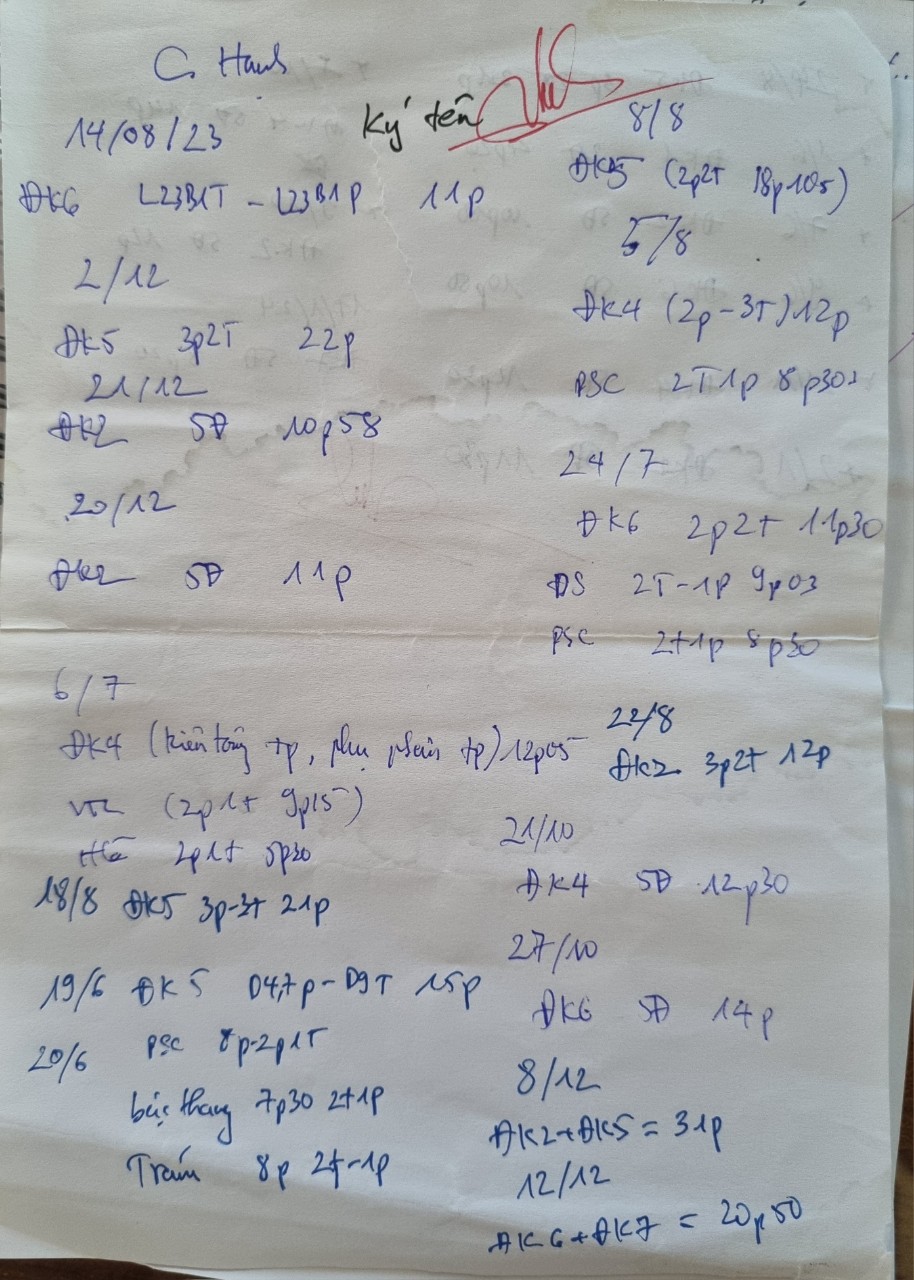 C. Hạnh
Ký tên
14/08/23
ĐK6 L23B1T - L23B1P 11p
2/12
ĐK5 3p2T 22p
21/12
ĐK2 5Đ 10p58
20/12
ĐK2 5Đ 11p
6/7
ĐK4 (kiên tông tp, phụ phân tp) 12p05
VTL (2p1t 9p15)
2p1t 5p30
18/8 ĐK5 3p-3t 21p
19/6 ĐK5 D4,7p - D9T 15p
20/6 PSC 8p-2p1T
bậc thang 7p30 2t1p
Trám 8p 2t-1p
8/8
ĐK5 (2p2T 18p10s)
5/8
ĐK4 (2p-3T) 12p
PSC 2T1p 8p30s
24/7
ĐK6 2p2t 11p30
DS 2T-1P 9p03
PSC 2t1p 8p30
22/8
ĐK2 3p2t 12p
21/10
ĐK4 5Đ 12p30
27/10
ĐK6 5Đ 14p
8/12
ĐK2+ĐK5 = 31p
12/12
ĐK6+ĐK7 = 20p50